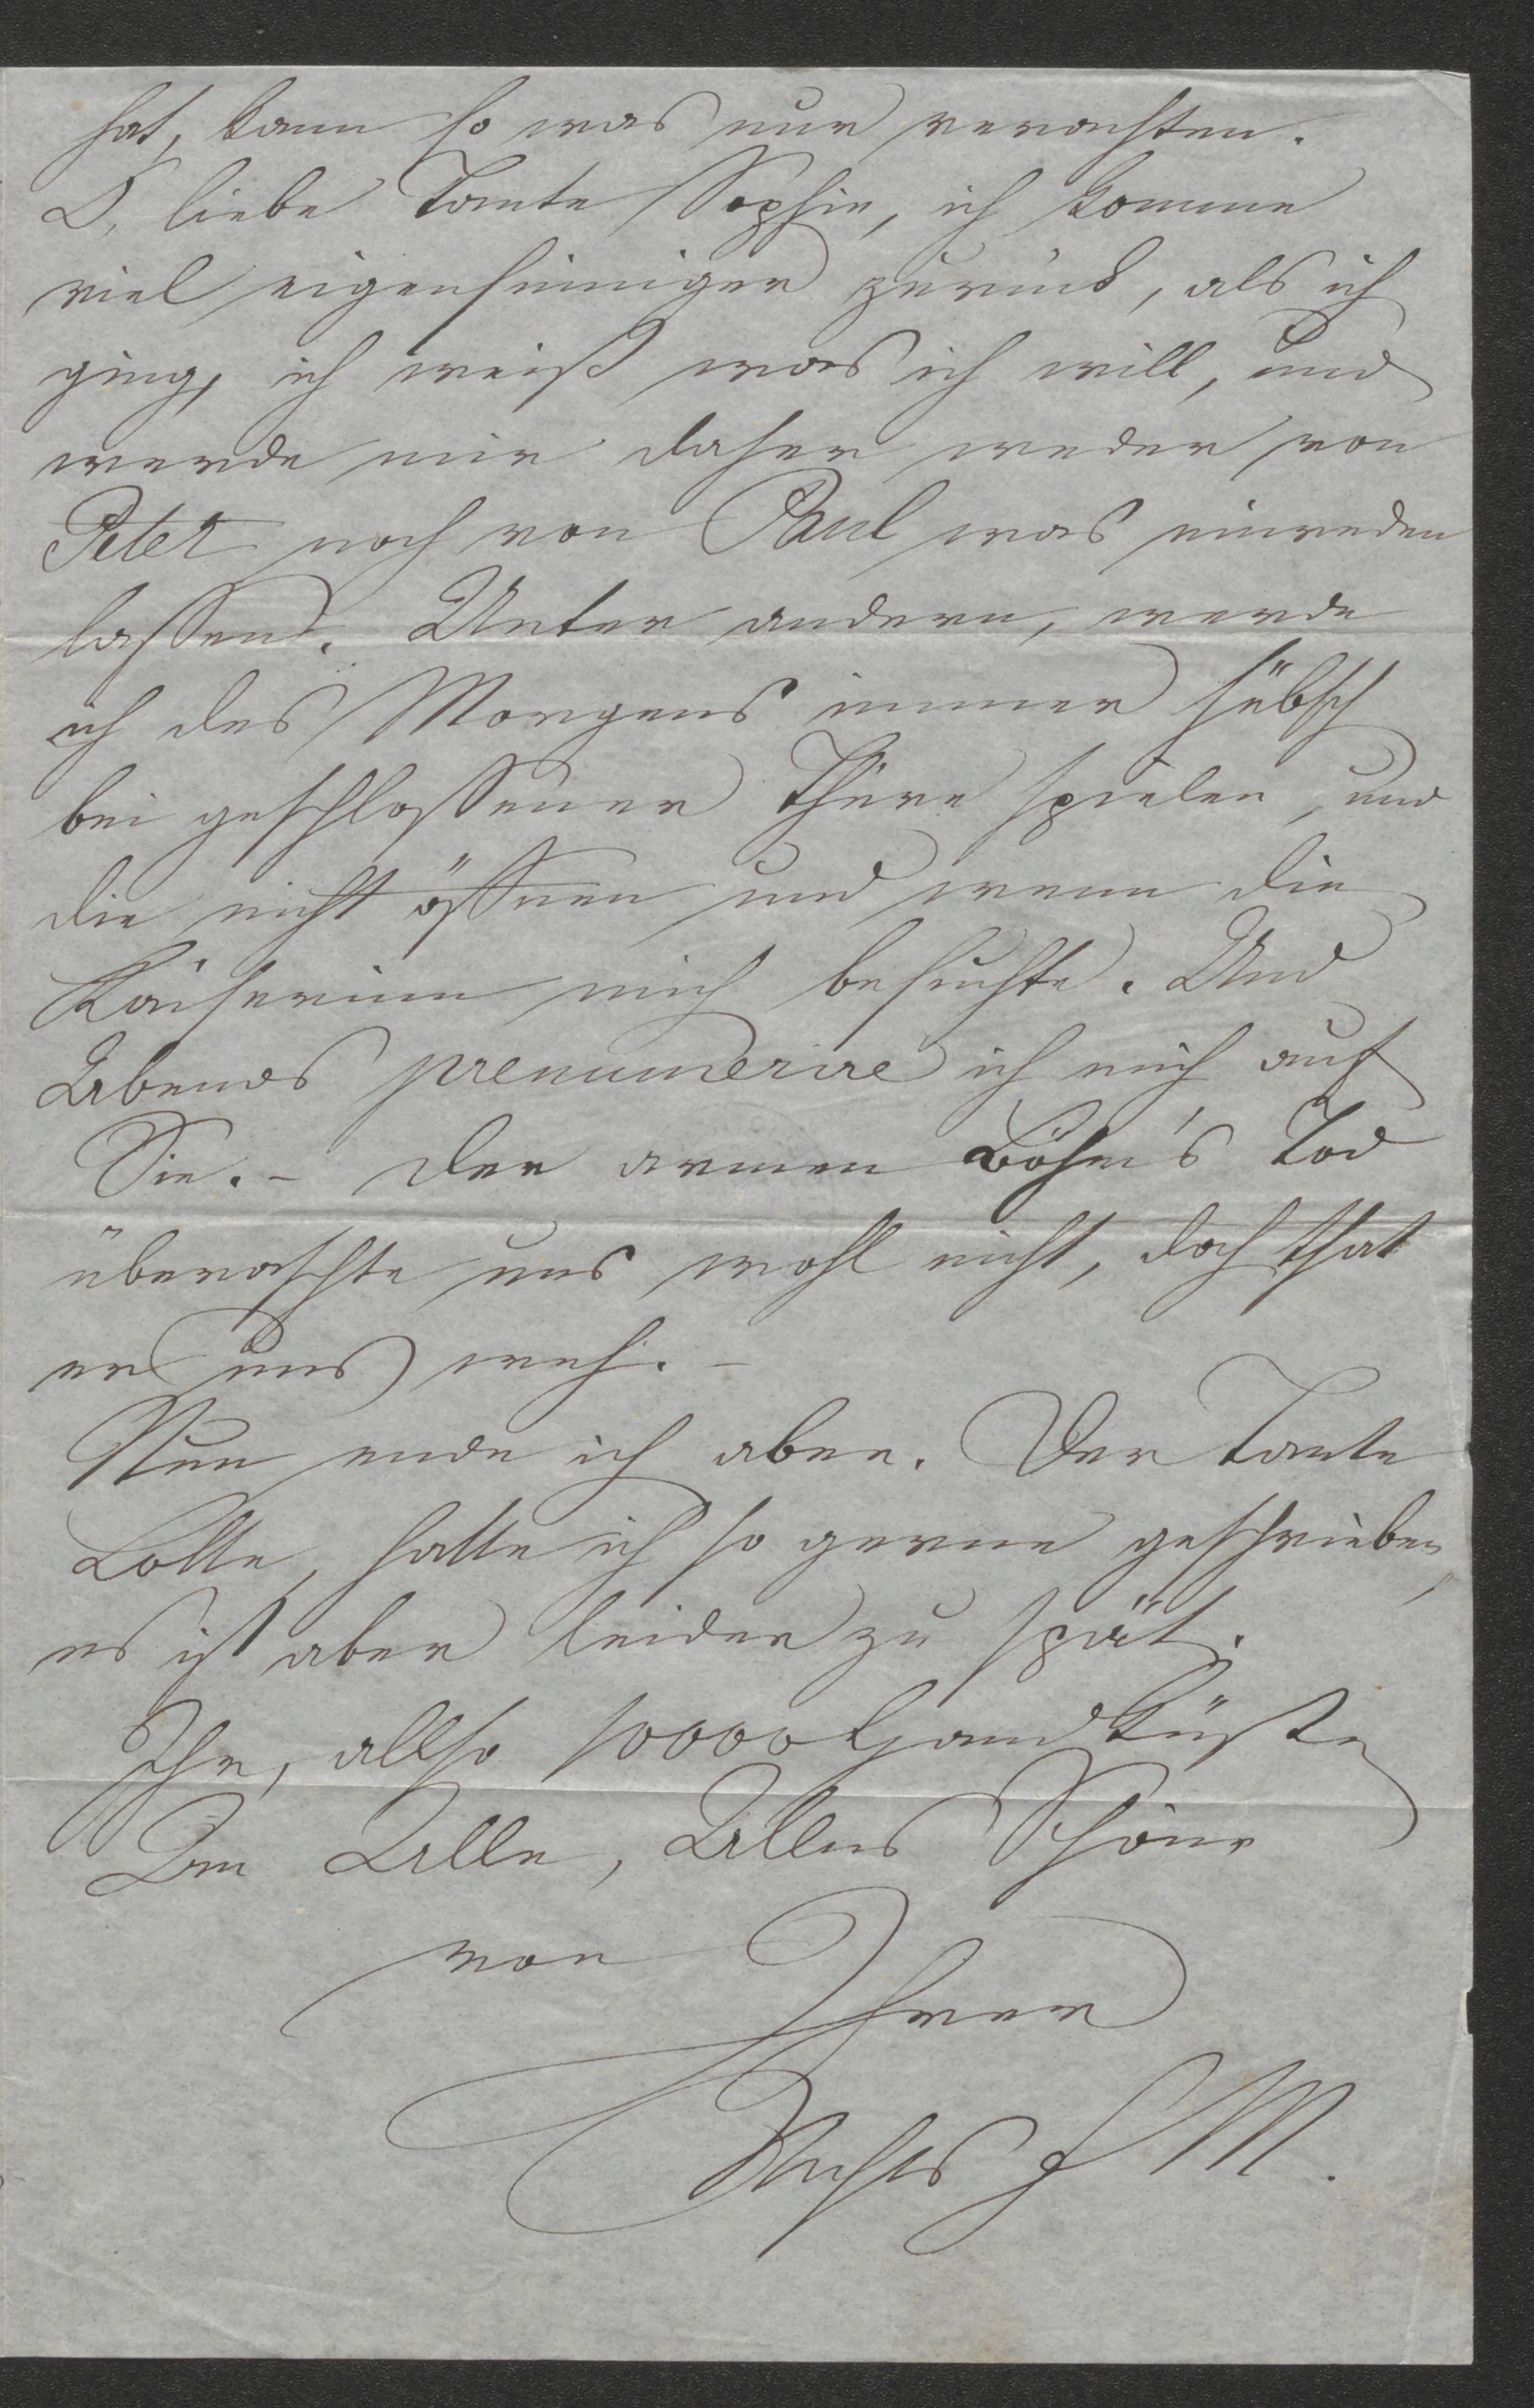 hat, kann so was nur verachten.
O, liebe Tante Sophie, ich komme
viel eigensinniger zurück, als ich
ging, ich weiß was ich will, und
werde mir daher weder von
Peter noch von Paul was einreden
lassen. Unter andern, werde
ich des Morgens immer hübsch
bei geschlossener Thüre spielen, und
die nicht öffnen und wenn die
Kaiserinn mich besuchte. Und
Abends prenumerire ich mich auf
Sie. – Der armen Böhm's Tod
überraschte uns wohl nicht, doch that
er uns weh. –
Nun ende ich aber. Der Tante
Lotte, hätte ich so gerne geschrieben,
es ist aber leider zu spät.
Ihr, allso 10000 Handküsse
An Alle, Alles Schöne
von Ihrer